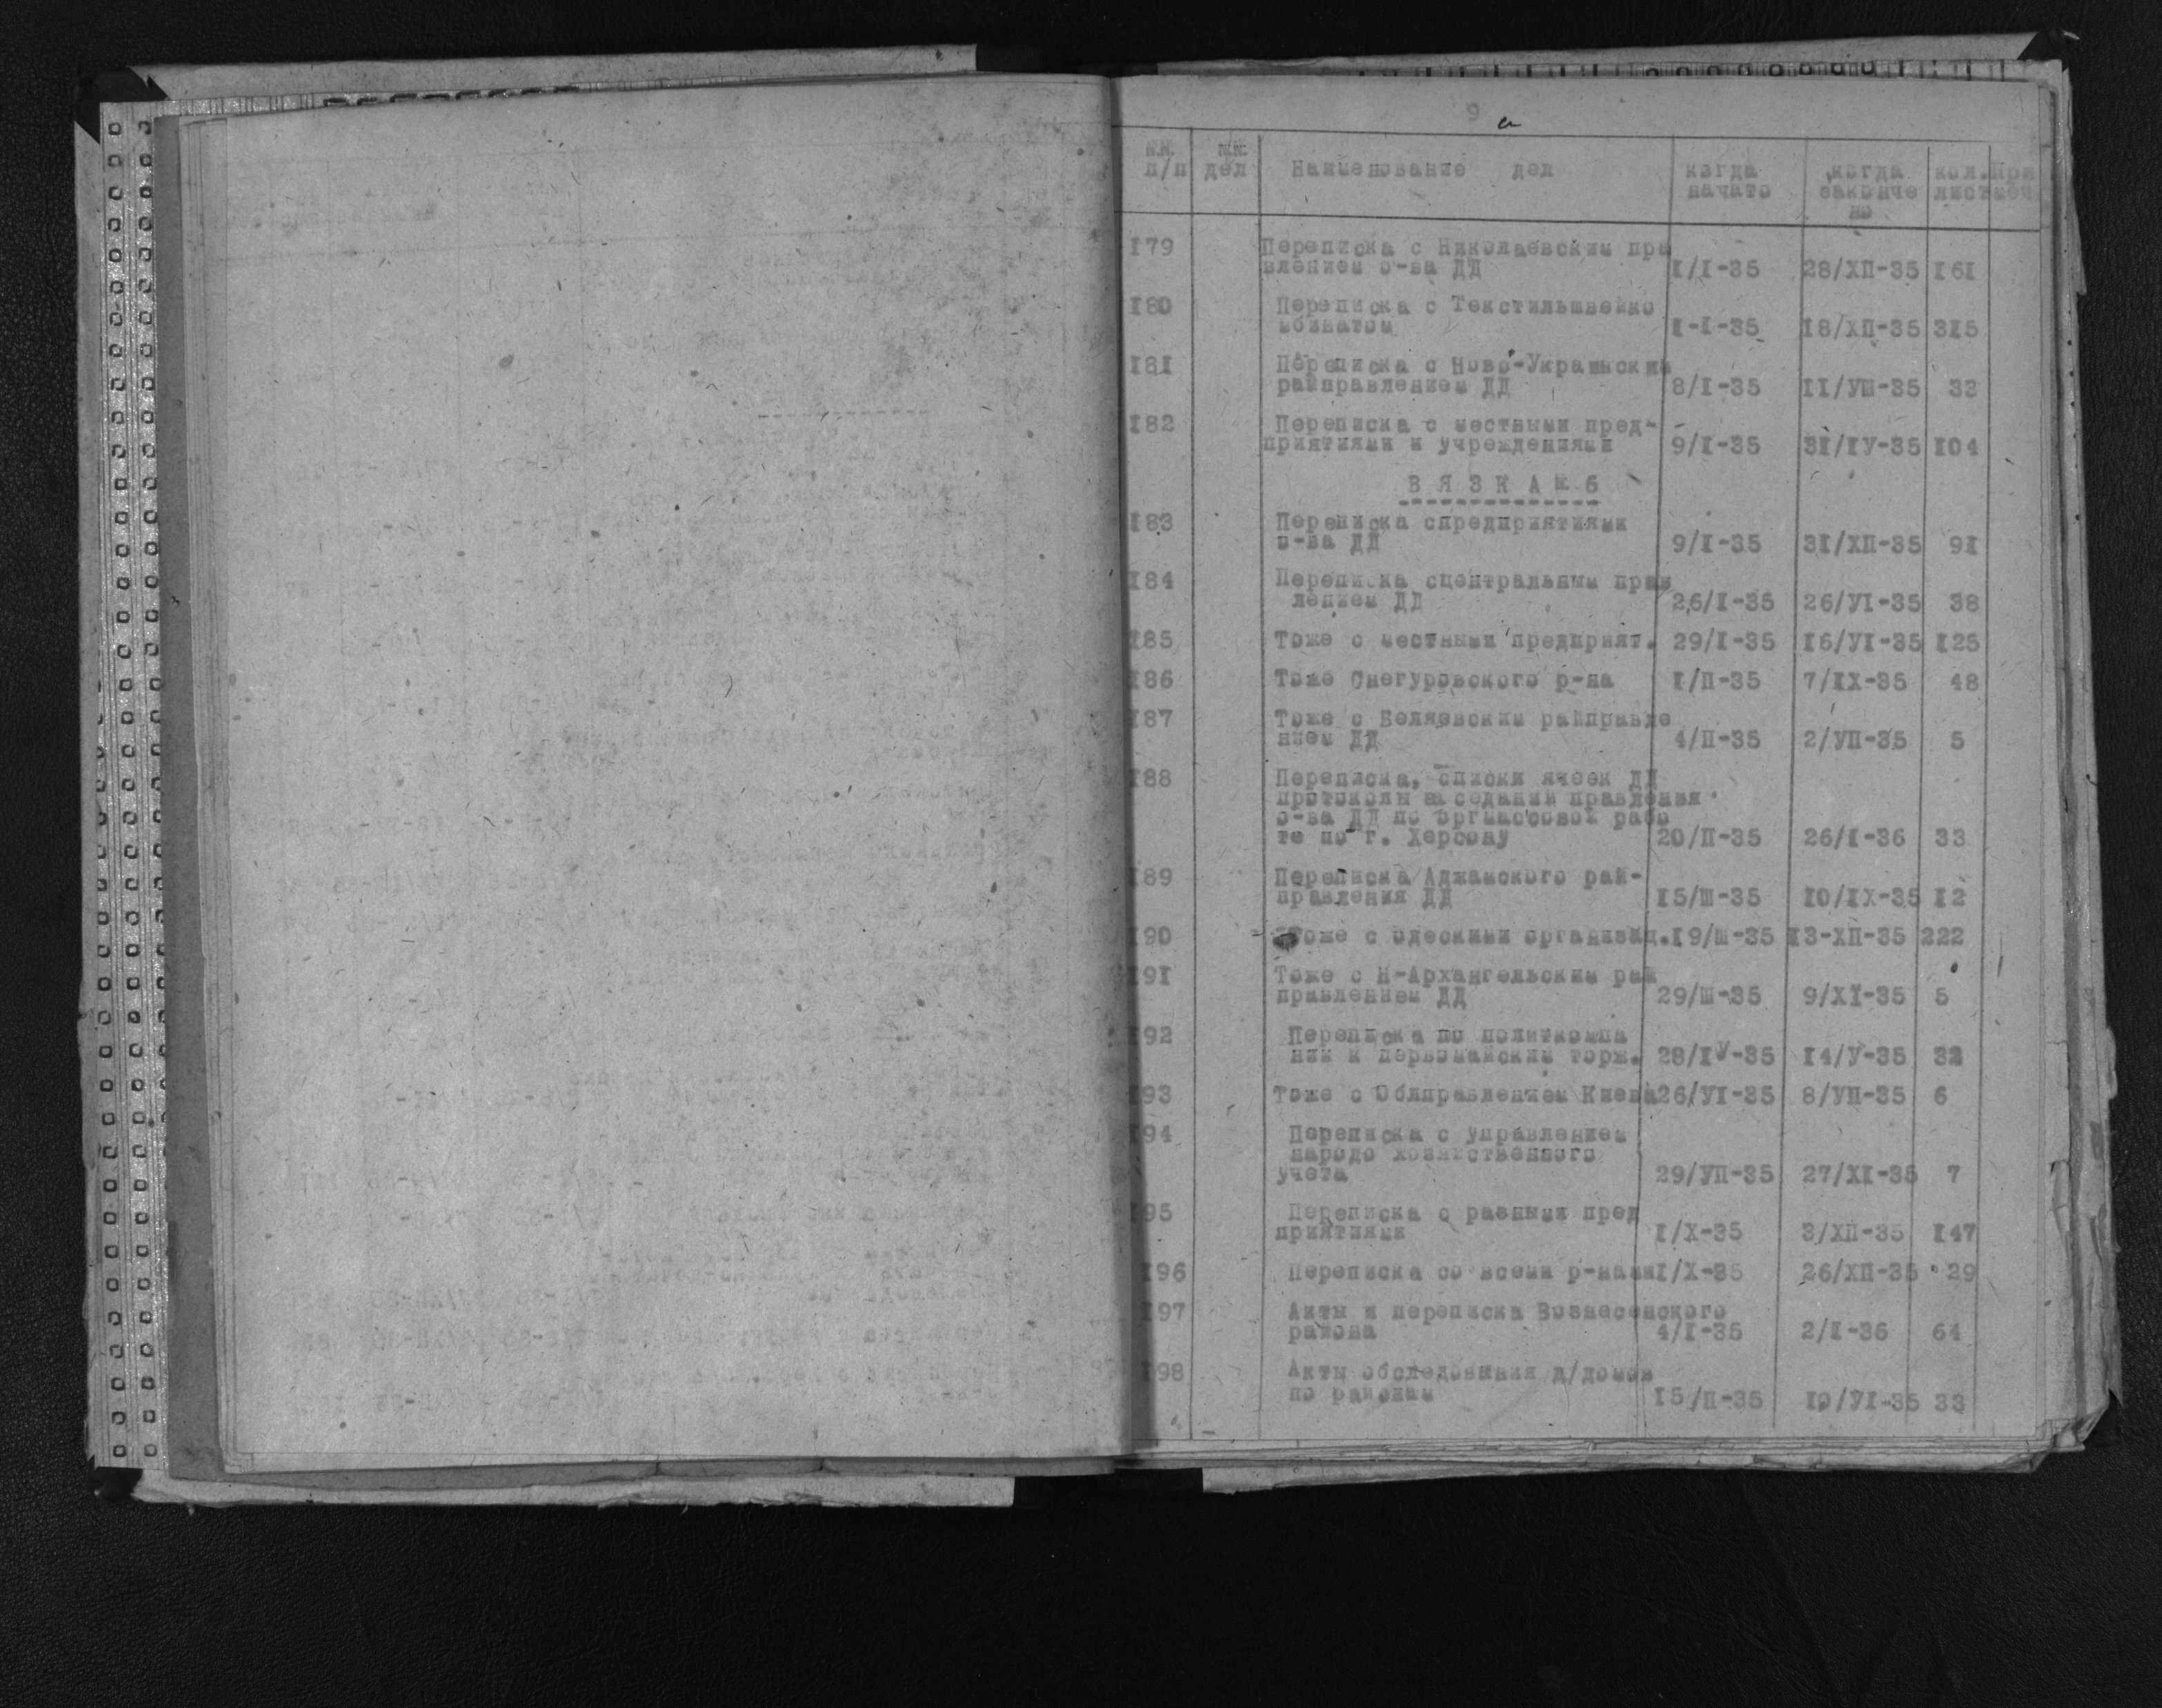 9 а
№№ п/п №№ дел Наименование дел когда начато когда законче но кол. лист При меч.
179 Переписка с Николаевским пра
влением о-ва ДД 1/1-35 28/ХП-35 161
180 Переписка с Текстильшвейко
мбинатом 1-1-35 18/ХП-35 315
181 Переписка с Ново-Украинским
райправлением ДД 8/1-35 11/УШ-35 33
182 Переписка с местными пред-
приятиями и учреждениями 9/1-35 31/1У-35 104
В Я З К А № 6
183 Переписка спредприятиями
о-ва ДД 9/1-35 31/ХП-35 91
184 Переписка сцентральным прав
лением ДД 26/1-35 26/У1-35 38
185 Тоже с местными предприят. 29/1-35 16/У1-35 125
186 Тоже Снегуровского р-на 1/П-35 7/1Х-35 48
187 Тоже с Беляевским райправле
нием ДД 4/П-35 2/УП-35 5
188 Переписка, списки ячеек ДД
протоколы заседаний правления
о-ва ДД по оргмассовой рабо
те по г. Херсону 20/П-35 26/1-36 33
189 Переписка Аджамского рай-
правления ДД 15/Ш-35 10/1Х-35 12
190 Тоже с одескими организац. 19/Ш-35 13-ХП-35 222
191 Тоже с Н-Архангельским рай
правлением ДД 29/Ш-35 9/Х1-35 5
192 Переписка по политкомпа
нии к первомайским торж. 28/1У-35 14/У-35 32
193 Тоже с Облправлением Киева 26/У1-35 8/УП-35 6
194 Переписка с управлением
народо хозяйственного
учета 29/УП-35 27/Х1-35 7
195 Переписка с разными пред
приятиями 1/Х-35 3/ХП-35 147
196 Переписка со всеми р-нами 1/Х-35 26/ХП-35 29
197 Акты и переписка Вознесенского
района 4/1-35 2/1-36 64
198 Акты обследования д/домов
по районам 15/П-35 19/У1-35 33